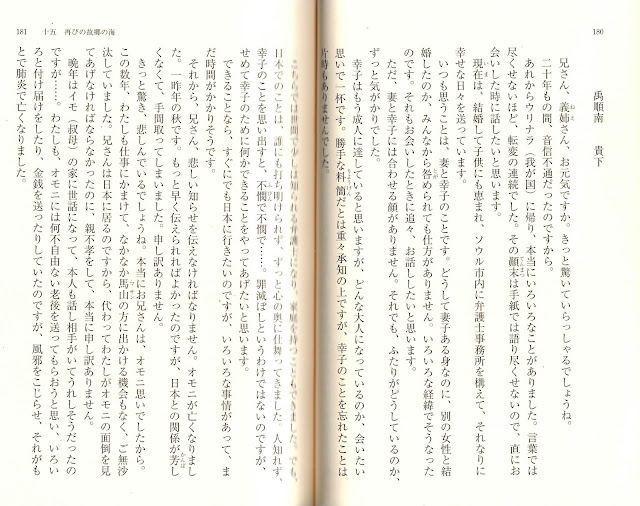 180
禹順南　貴下
兄さん、義姉さん、お元気ですか。きっと驚いていらっしゃるでしょうね。
二十年もの間、音信不通だったのですから。
あれからウリナラ（我が国）に帰り、本当にいろいろなことがありました。言葉では
尽くせないほど、転変の連続でした。その顛末は手紙では語り尽くせないので、直にお
会いした時に話したいと思います。
現在は、結婚して子供にも恵まれ、ソウル市内に弁護士事務所を構えて、それなりに
幸せな日々を送っています。
いつも思うことは、妻と幸子のことです。どうして妻子ある身なのに、別の女性と結
婚したのか、みんなから咎められても仕方がありません。いろいろな経緯でそうなった
のです。それもお会いしたときに追々、お話ししたいと思います。
ただ、妻と幸子には合わせる顔がありません。それでも、ふたりがどうしているのか、
ずっと気がかりでした。
幸子はもう成人に達していると思いますが、どんな大人になっているのか、会いたい
思いで一杯です。勝手な料簡だとは重々承知の上ですが、幸子のことを忘れたことは
片時もありませんでした。
181　十五　再びの故郷の海
こちらでは世間で少しは知られる弁護士になり、家庭を持つこともできました。でも、
日本でのことは、誰にも打ち明けられず、ずっと心の奥に仕舞ってきました。人知れず、
幸子のことを思い出すと、不憫で不憫で……。罪滅ぼしというわけではないのですが、
せめて幸子のために何かできることをやってあげたいと思います。
できることなら、すぐにでも日本に行きたいのですが、いろいろな事情があって、ま
だ時間がかかりそうです。
それから、兄さん、悲しい知らせを伝えなければなりません。オモニが亡くなりまし
た。一昨年の秋です。もっと早く伝えられればよかったのですが、日本との関係が芳し
くなくて、手間取ってしまいました。申し訳ありません。
きっと驚き、悲しんでいるでしょうね。本当にお兄さんは、オモニ思いでしたから。
この数年、わたしも仕事にかまけて、なかなか馬山の方に出かける機会もなく、ご無沙
汰していました。兄さんは日本に居るのですから、代わってわたしがオモニの面倒を見
てあげなければならなかったのに、親不孝をして、本当に申し訳ありません。
晩年はイモ（叔母）の家に世話になって、本人も話し相手がいてうれしそうだったの
ですが……。わたしも、オモニには何不自由ない老後を送ってもらおうと思い、いろい
ろと付け届けをしたり、金銭を送ったりしていたのですが、風邪をこじらせ、それがも
とで肺炎で亡くなりました。